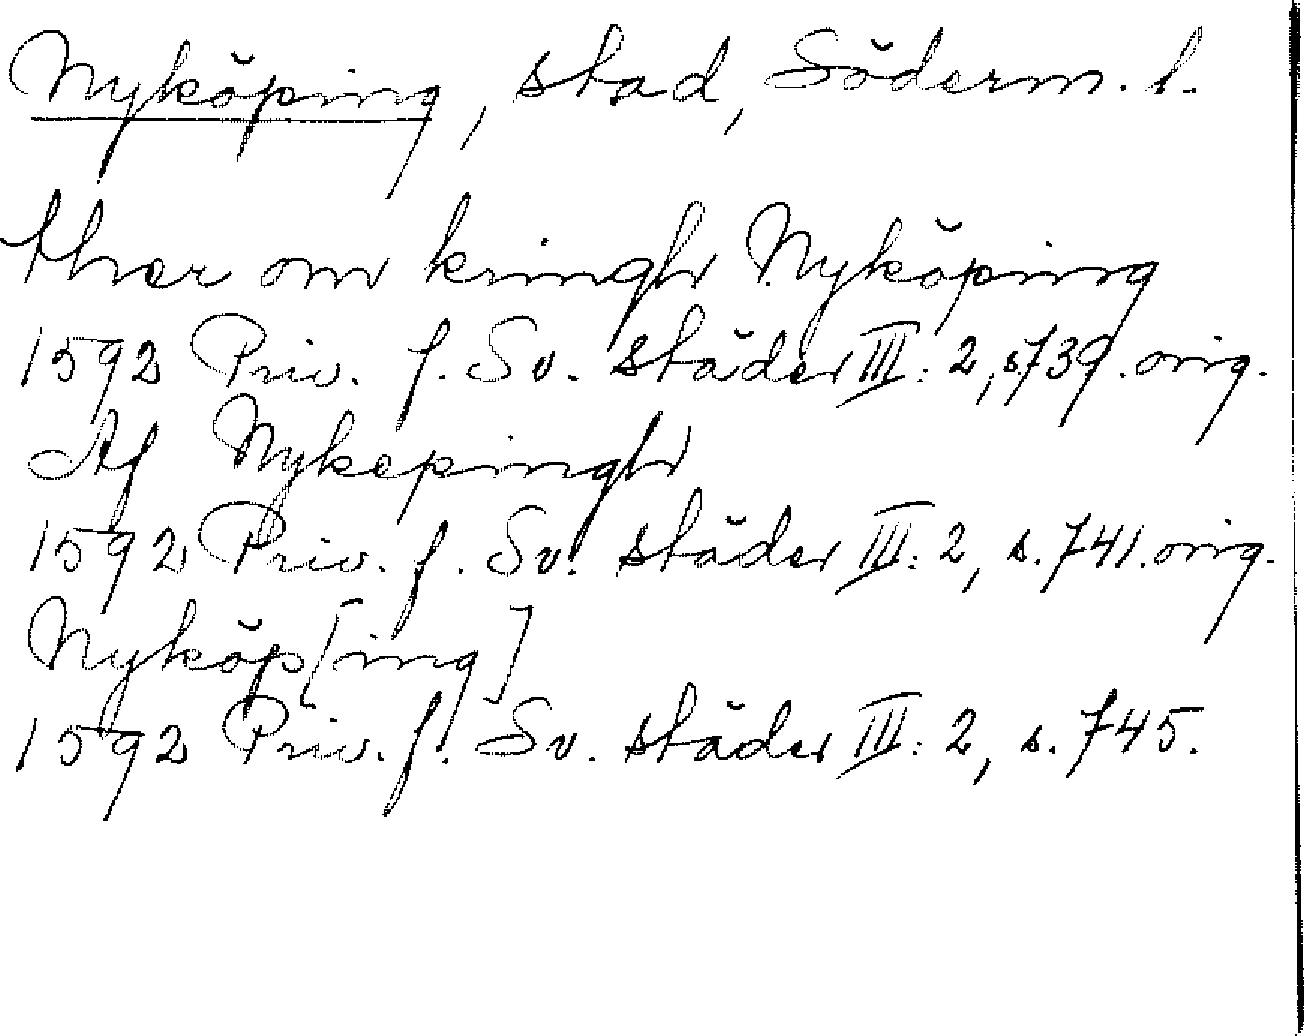 Nyköping, stad, Söderm. l.
ther om kringh Nyköping
1592 Priv. f. Sv. städer III: 2, s. 739. orig.
Af Nykepingh
1592 Priv. f. Sv. städer III: 2, s. 741. orig.
Nyköp[ing]
1592 Priv. f. Sv. städer III: 2, s. 745.